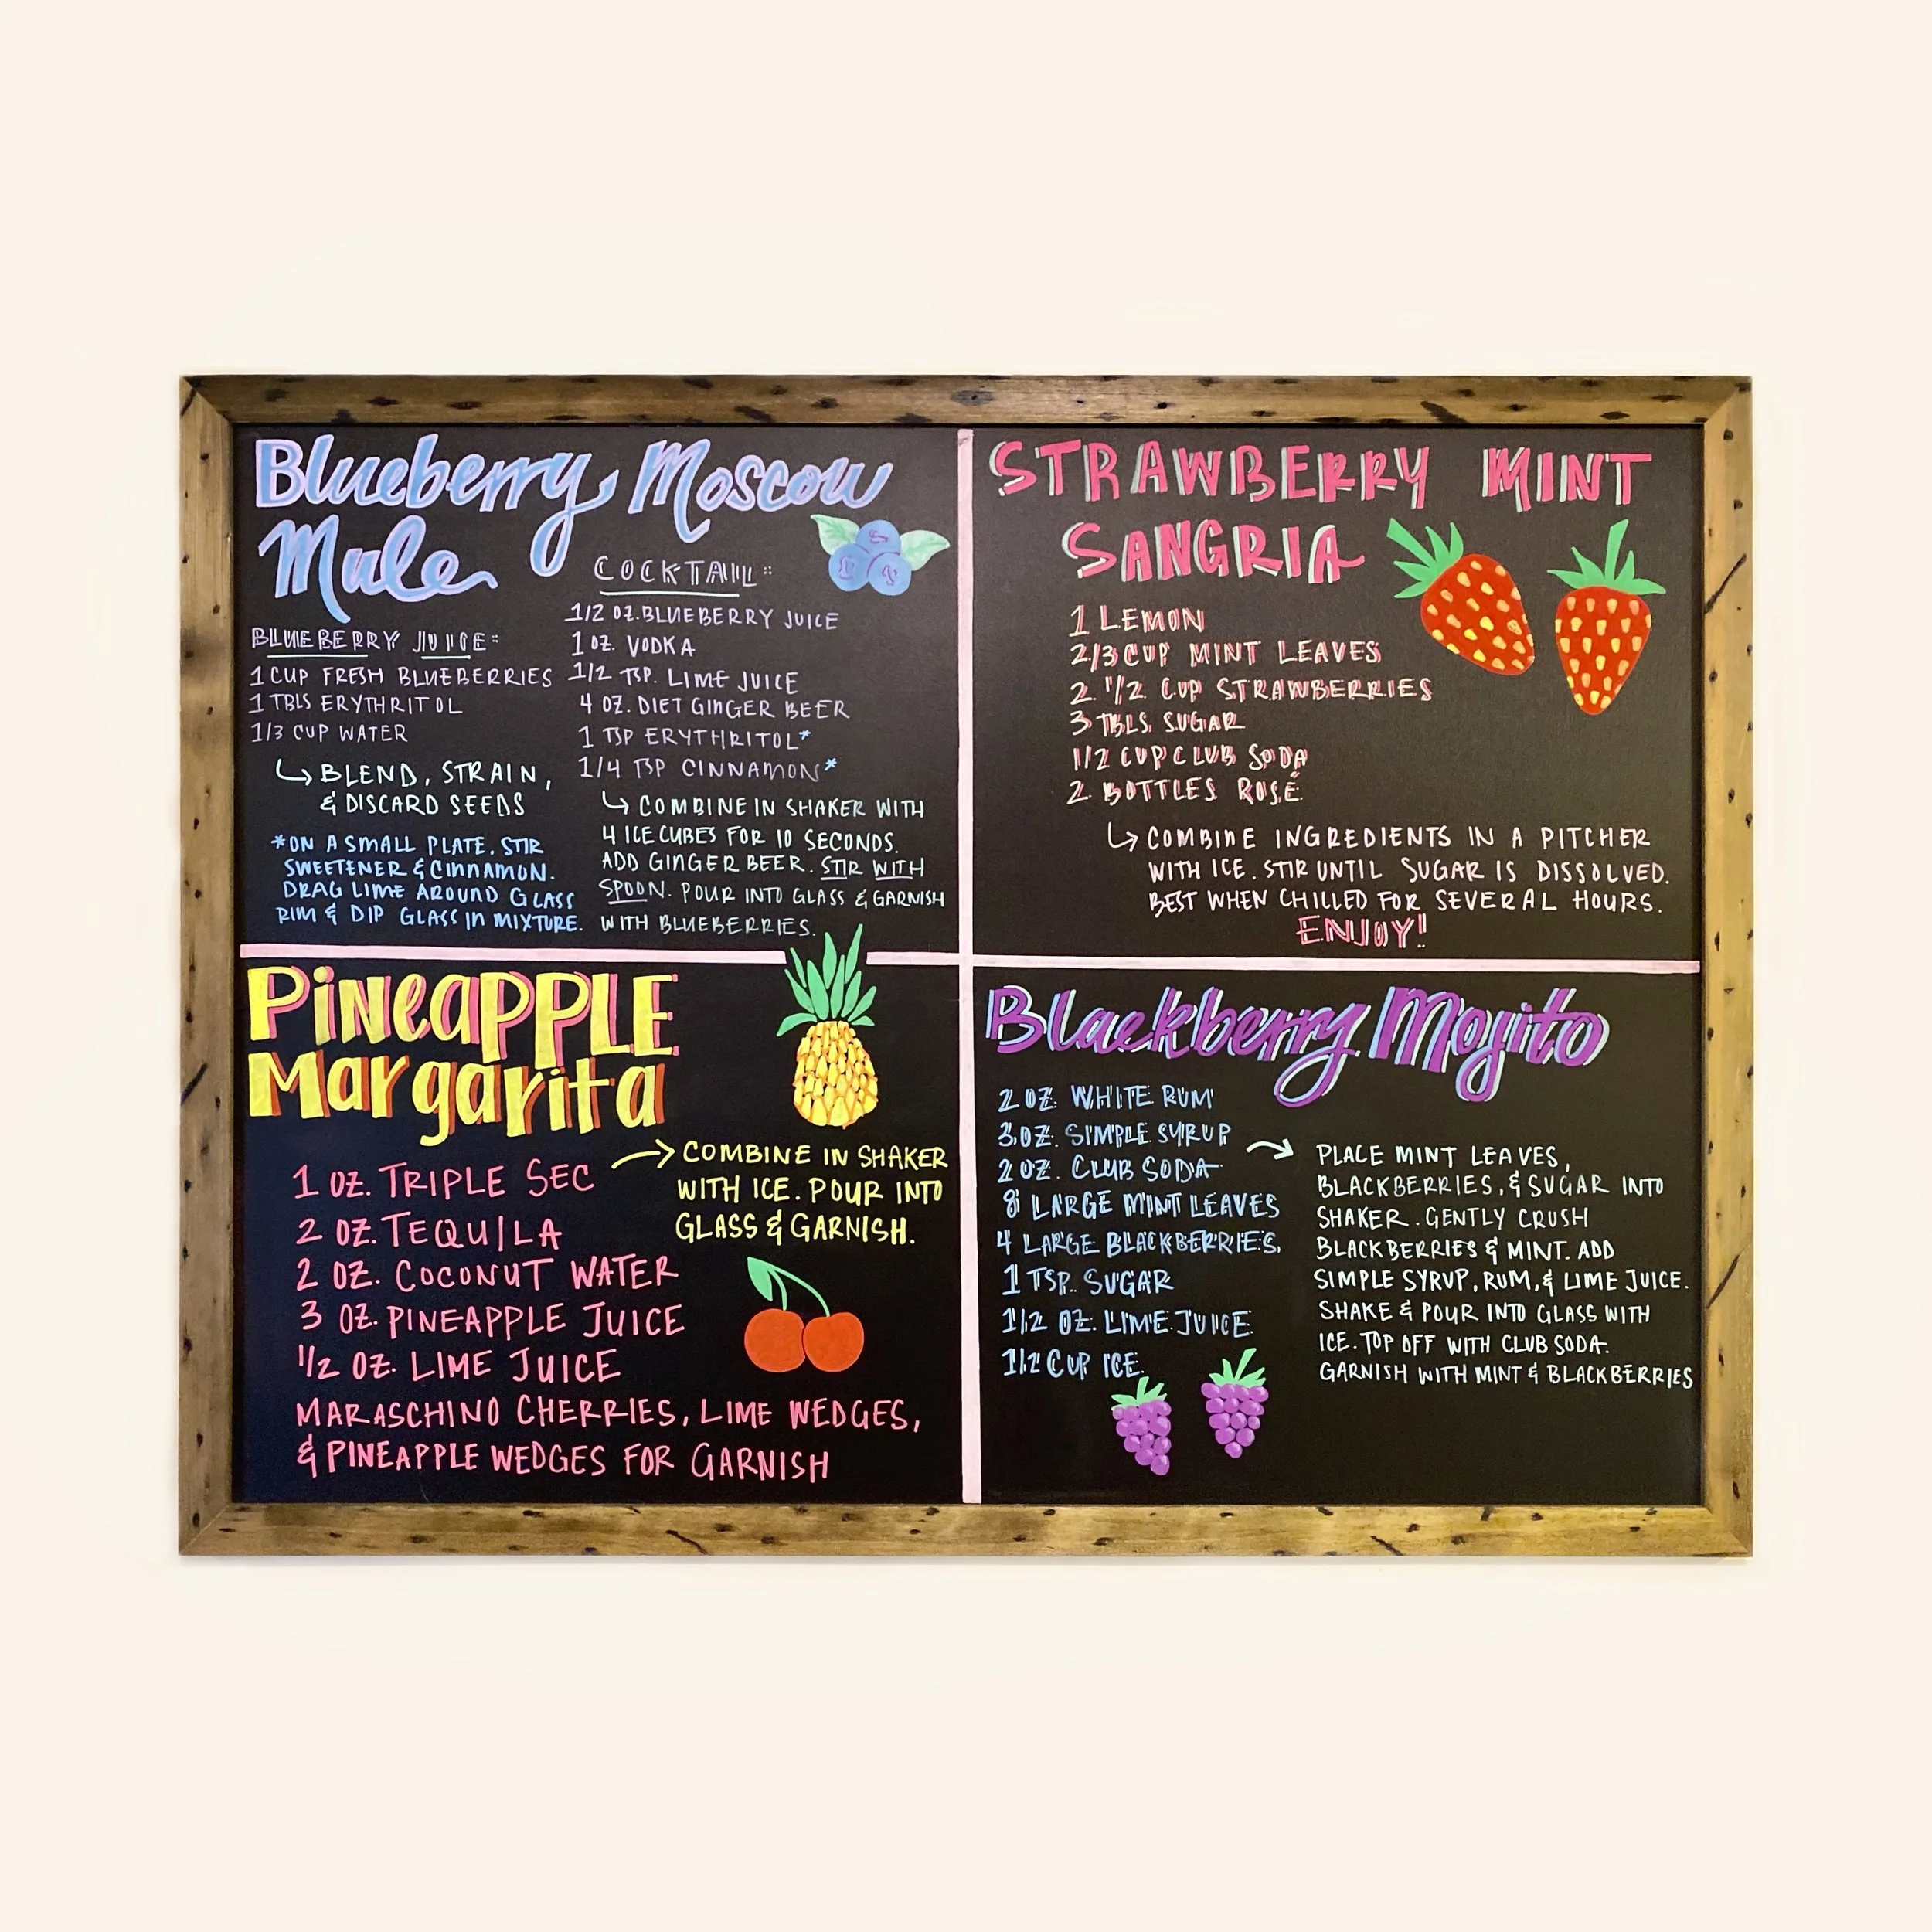 Blueberry Moscow
Mule
BLUEBERRY JUICE:
1 CUP FRESH BLUEBERRIES
1 TBLS ERYTHRITOL
1/3 CUP WATER
↳ BLEND, STRAIN,
& DISCARD SEEDS
*ON A SMALL PLATE, STIR
SWEETENER & CINNAMON.
DRAG LIME AROUND GLASS
RIM & DIP GLASS IN MIXTURE.
COCKTAIL:
1/2 OZ. BLUEBERRY JUICE
1 OZ. VODKA
1/2 TSP. LIME JUICE
4 OZ. DIET GINGER BEER
1 TSP ERYTHRITOL*
1/4 TSP CINNAMON*
↳ COMBINE IN SHAKER WITH
4 ICE CUBES FOR 10 SECONDS.
ADD GINGER BEER. STIR WITH
SPOON. POUR INTO GLASS & GARNISH
WITH BLUEBERRIES.
STRAWBERRY MINT
SANGRIA
1 LEMON
2/3 CUP MINT LEAVES
2 1/2 CUP STRAWBERRIES
3 TBLS. SUGAR
1/2 CUP CLUB SODA
2 BOTTLES ROSÉ
↳ COMBINE INGREDIENTS IN A PITCHER
WITH ICE. STIR UNTIL SUGAR IS DISSOLVED.
BEST WHEN CHILLED FOR SEVERAL HOURS.
ENJOY!
PiNeaPPLE
Margarita
1 OZ. TRIPLE SEC
2 OZ. TEQUILA
2 OZ. COCONUT WATER
3 OZ. PINEAPPLE JUICE
1/2 OZ. LIME JUICE
MARASCHINO CHERRIES, LIME WEDGES,
& PINEAPPLE WEDGES FOR GARNISH
→ COMBINE IN SHAKER
WITH ICE. POUR INTO
GLASS & GARNISH.
Blackberry Mojito
2 OZ. WHITE RUM
3 OZ. SIMPLE SYRUP
2 OZ. CLUB SODA
8 LARGE MINT LEAVES
4 LARGE BLACKBERRIES
1 TSP. SUGAR
1/2 OZ. LIME JUICE
1/2 CUP ICE
→ PLACE MINT LEAVES,
BLACKBERRIES, & SUGAR INTO
SHAKER. GENTLY CRUSH
BLACKBERRIES & MINT. ADD
SIMPLE SYRUP, RUM, & LIME JUICE.
SHAKE & POUR INTO GLASS WITH
ICE. TOP OFF WITH CLUB SODA.
GARNISH WITH MINT & BLACKBERRIES